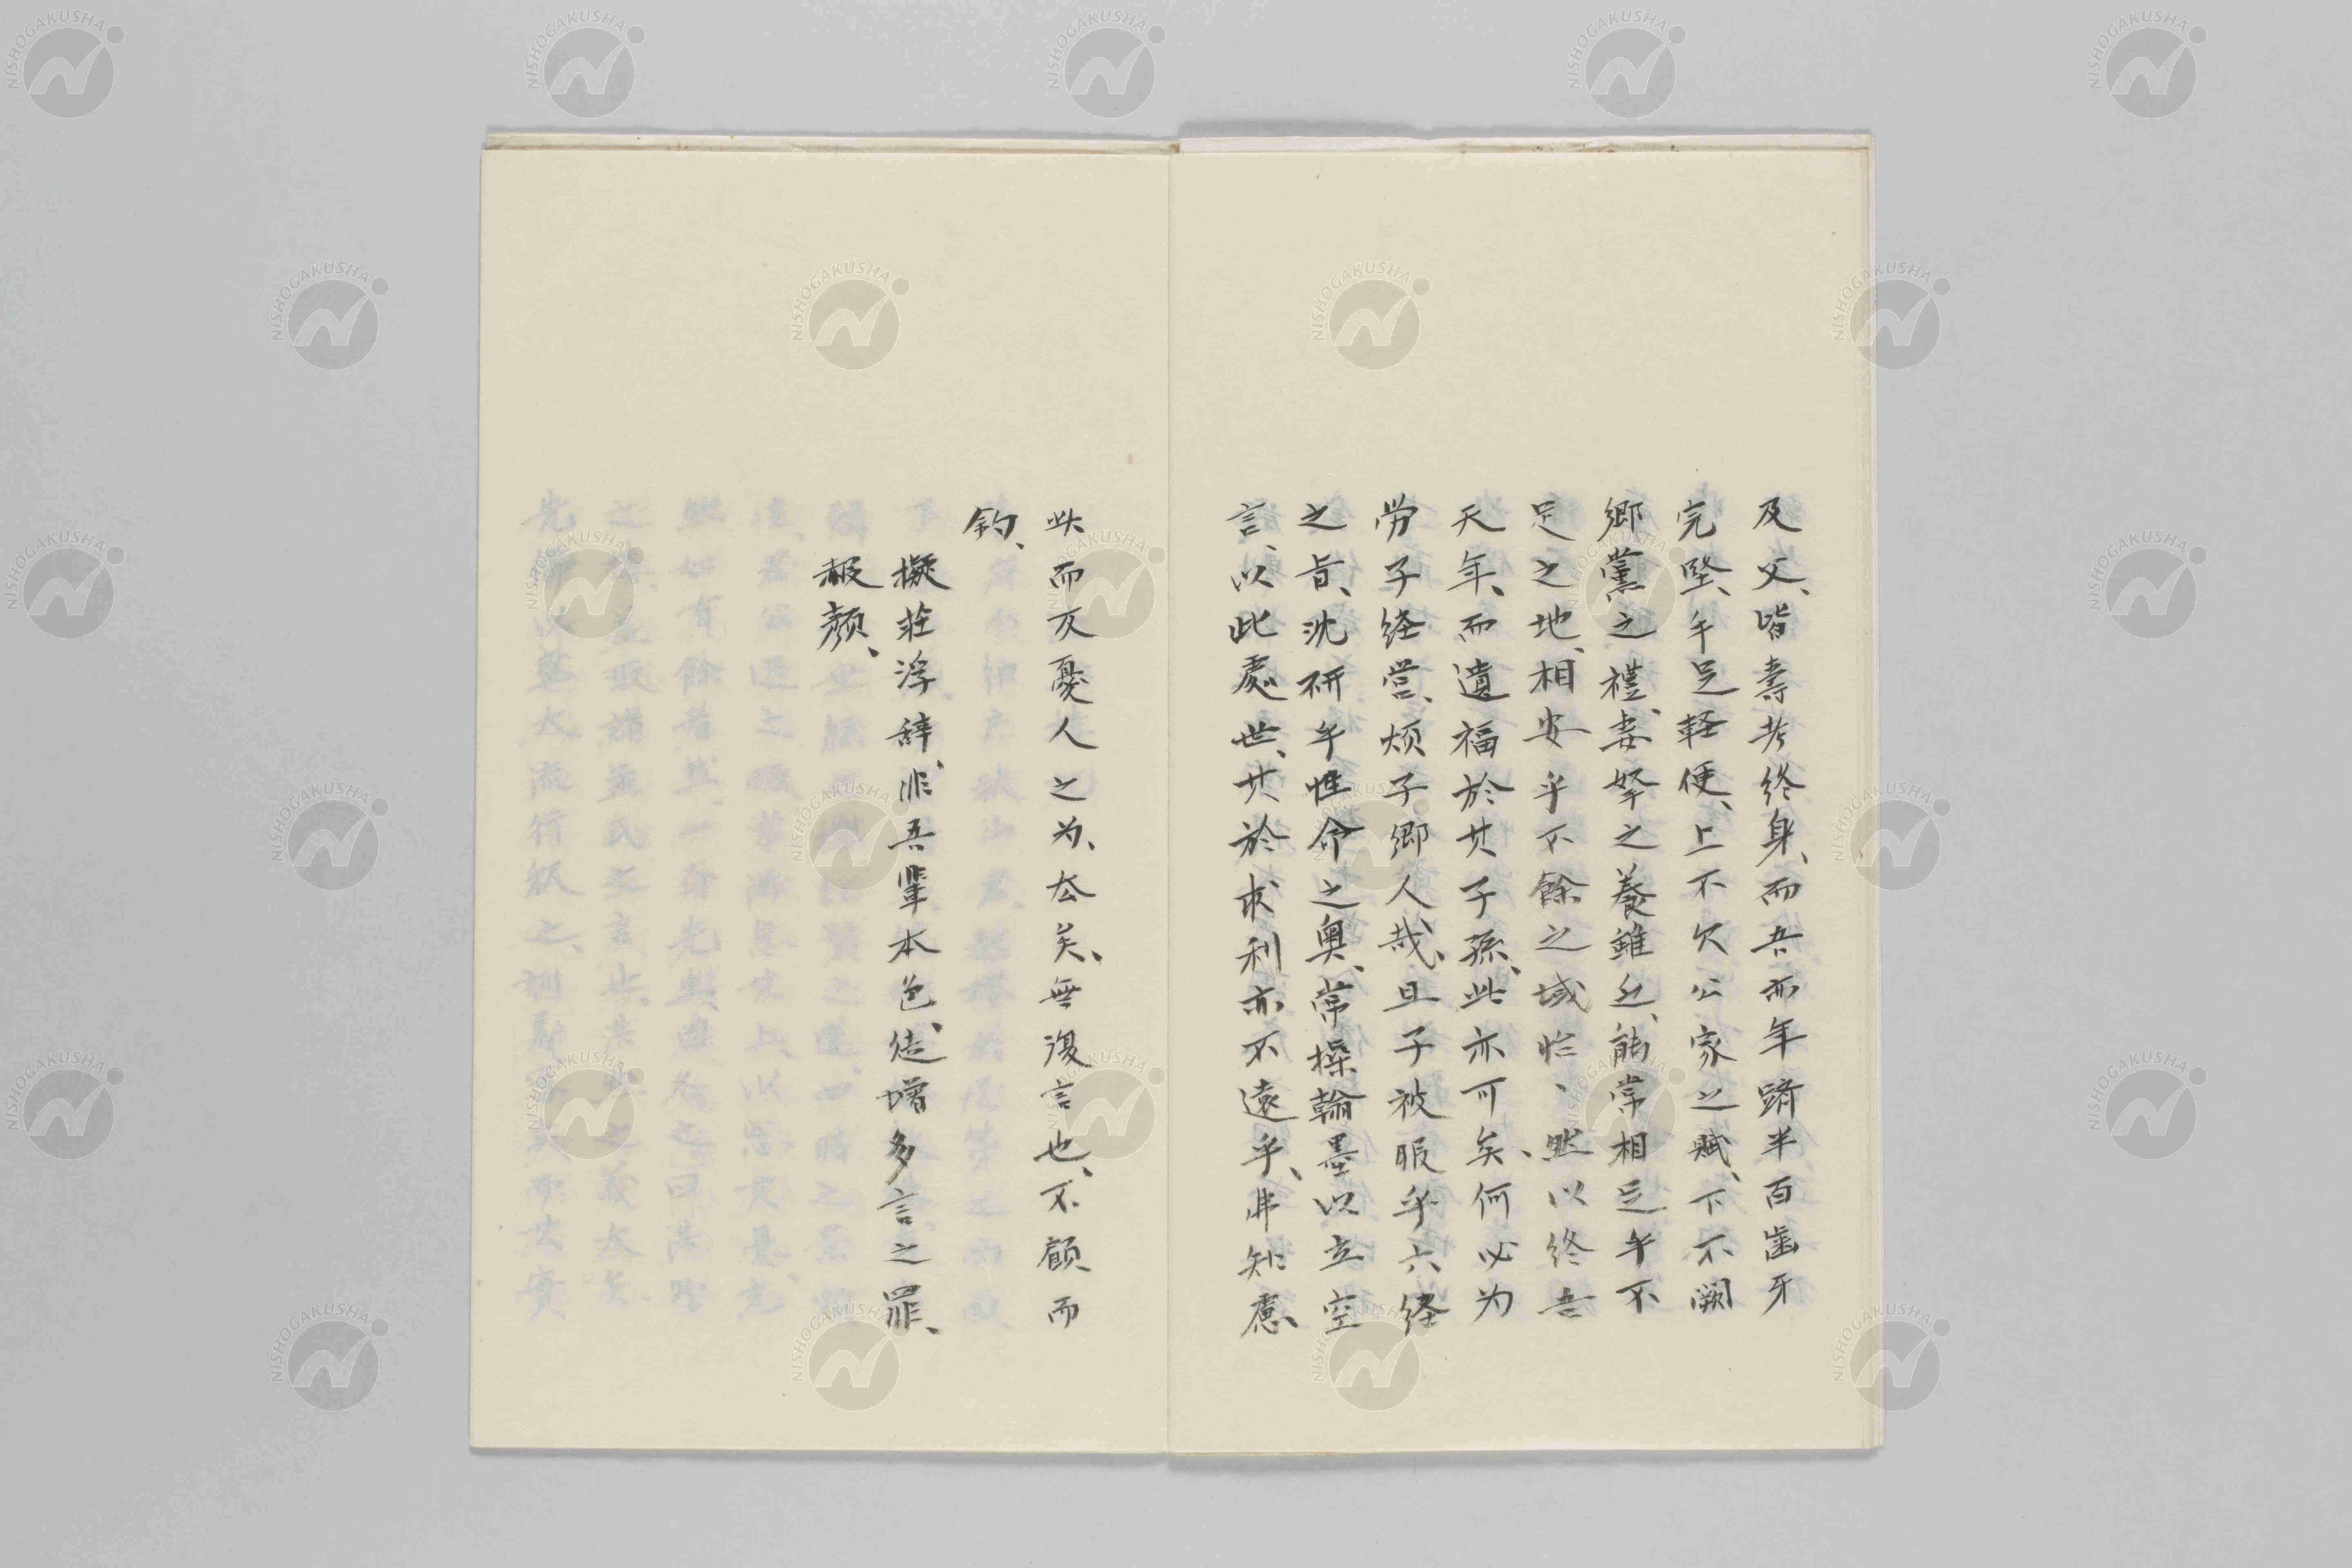 及父、皆壽考終身、而吾亦年躋半百歯牙
完堅、手足軽便、上不欠公家之賦、下不闕
郷黨之禮、妻孥之養雖乏、能常相足乎不
足之地、相安乎不餘之域恾、然以終吾
天年、而遺福於其子孫、此亦可矣、何必为
労子経営、煩子郷人哉、且子被服乎六経
之旨、沈研乎性命之奥、常操翰墨以立空
言、以此處世、其於求利亦不遠乎、弗知慮
此而反憂人之为、太矣、無復言也、不顧而
釣、
擬荘浮辞、非吾輩本色、徒増多言之罪、
赧顔、
NISHOGAKUSHA